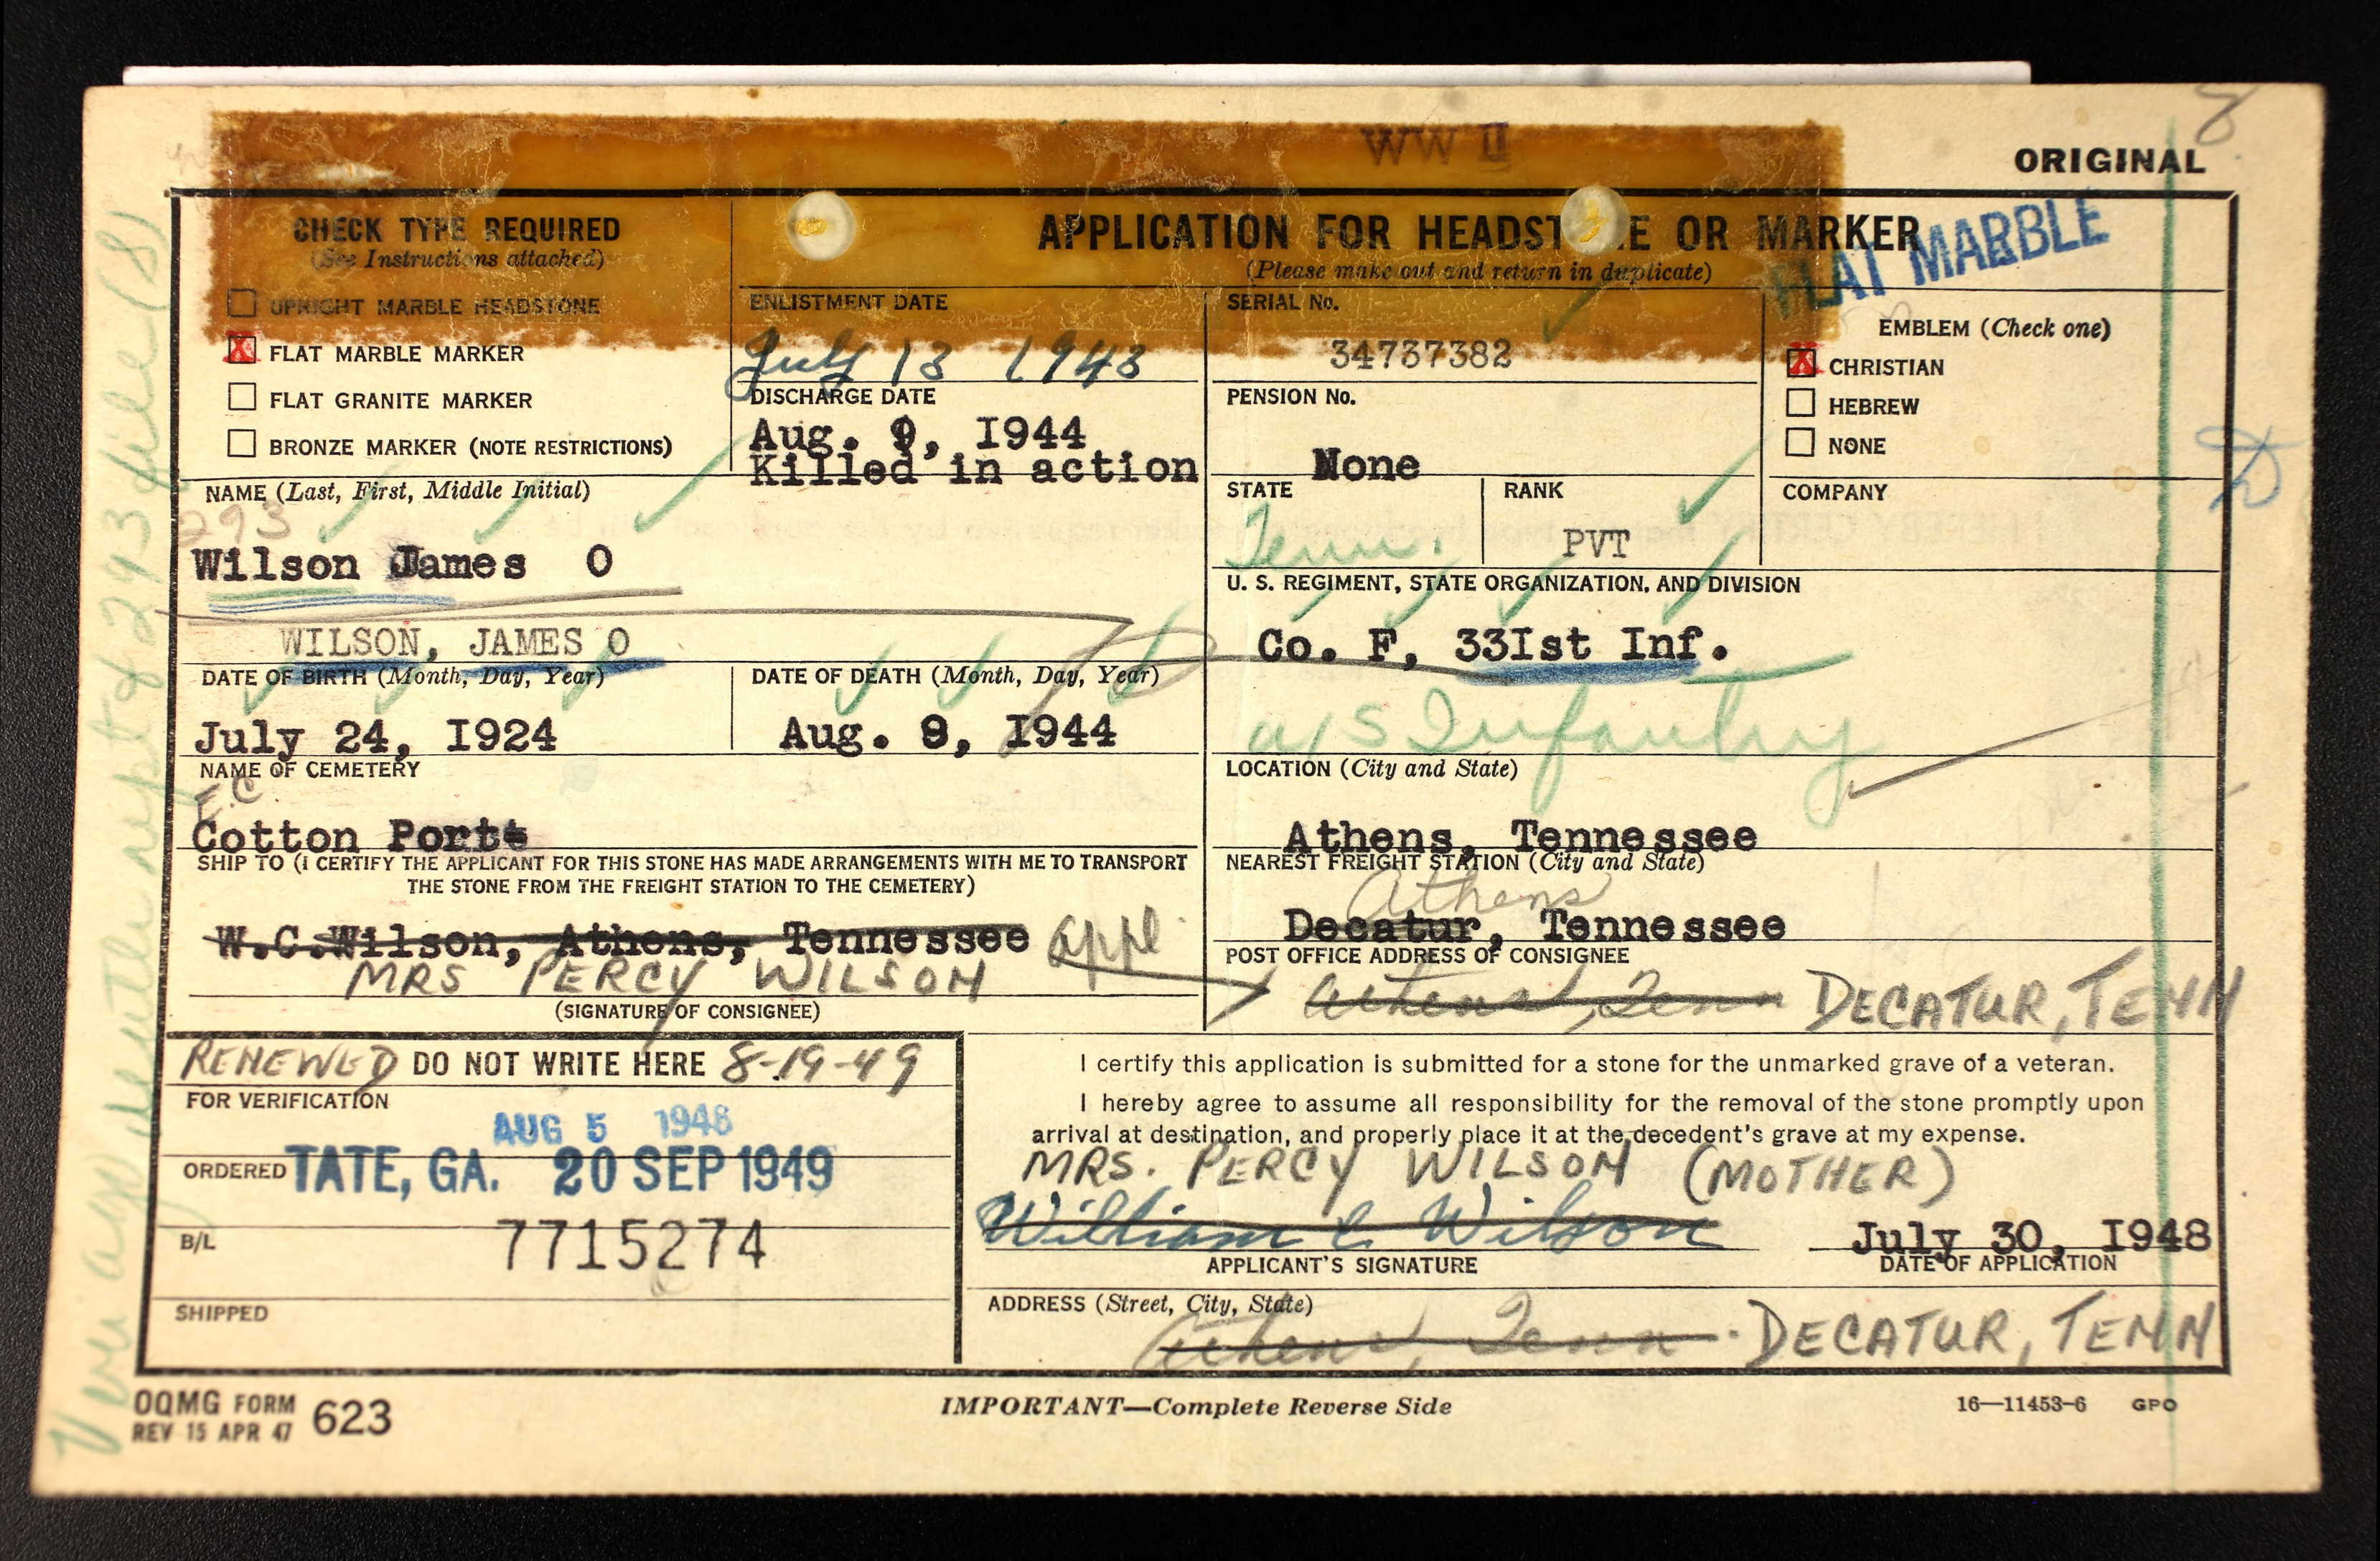 WW II
8
ORIGINAL
CHECK TYPE REQUIRED
(See Instructions attached)
UPRIGHT MARBLE HEADSTONE
X FLAT MARBLE MARKER
FLAT GRANITE MARKER
BRONZE MARKER (NOTE RESTRICTIONS)
APPLICATION FOR HEADST E OR MARKER
(Please make out and return in duplicate)
FLAT MARBLE
ENLISTMENT DATE
July 13 1943
SERIAL No.
34737382
EMBLEM (Check one)
X CHRISTIAN
HEBREW
NONE
DISCHARGE DATE
Aug. 9, I944
Killed in action
PENSION No.
None
D
NAME (Last, First, Middle Initial)
293
Wilson James O
WILSON, JAMES O
STATE
Tenn.
RANK
PVT
COMPANY
U. S. REGIMENT, STATE ORGANIZATION, AND DIVISION
Co. F, 33Ist Inf.
a/s Infantry
DATE OF BIRTH (Month, Day, Year)
July 24, I924
DATE OF DEATH (Month, Day, Year)
Aug. 9, I944
NAME OF CEMETERY
E.C
Cotton Port
LOCATION (City and State)
Athens, Tennessee
SHIP TO (I CERTIFY THE APPLICANT FOR THIS STONE HAS MADE ARRANGEMENTS WITH ME TO TRANSPORT
THE STONE FROM THE FREIGHT STATION TO THE CEMETERY)
W.C.Wilson, Athens, Tennessee appl
MRS PERCY WILSON
(SIGNATURE OF CONSIGNEE)
NEAREST FREIGHT STATION (City and State)
Athens
Decatur, Tennessee
POST OFFICE ADDRESS OF CONSIGNEE
Athens, Tenn DECATUR, TENN
RENEWED DO NOT WRITE HERE 8-19-49
FOR VERIFICATION
AUG 5 1948
ORDERED TATE, GA. 20 SEP 1949
B/L
7715274
SHIPPED
I certify this application is submitted for a stone for the unmarked grave of a veteran.
I hereby agree to assume all responsibility for the removal of the stone promptly upon
arrival at destination, and properly place it at the decedent's grave at my expense.
MRS. PERCY WILSON (MOTHER)
William C. Wilson
July 30, I948
APPLICANT'S SIGNATURE
DATE OF APPLICATION
ADDRESS (Street, City, State)
Athens, Tenn. DECATUR, TENN
OQMG FORM 623
REV 15 APR 47
IMPORTANT—Complete Reverse Side
16—11453-6 GPO